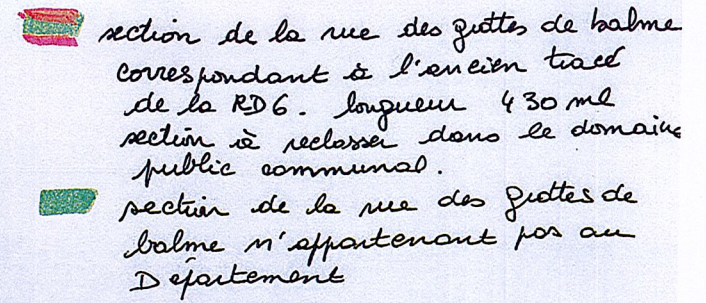 section de la rue des grottes de balme
correspondant à l'ancien tracé
de la RD6. longueur 430 ml
section à reclasser dans le domaine
public communal.
section de la rue des grottes de
balme n'appartenant pas au
Département